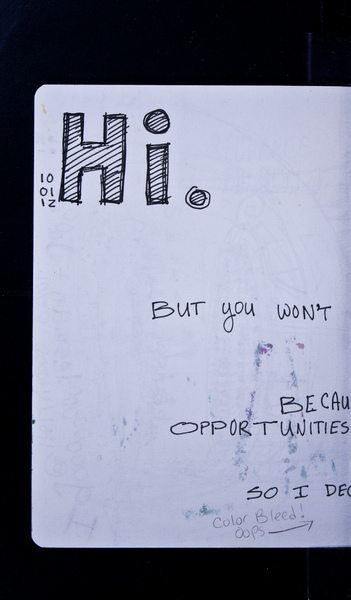 Hi.
10
01
12
BUT you WON'T
BECAU
OPPORTUNITIES
SO I DEC
Color Bleed!
Oops